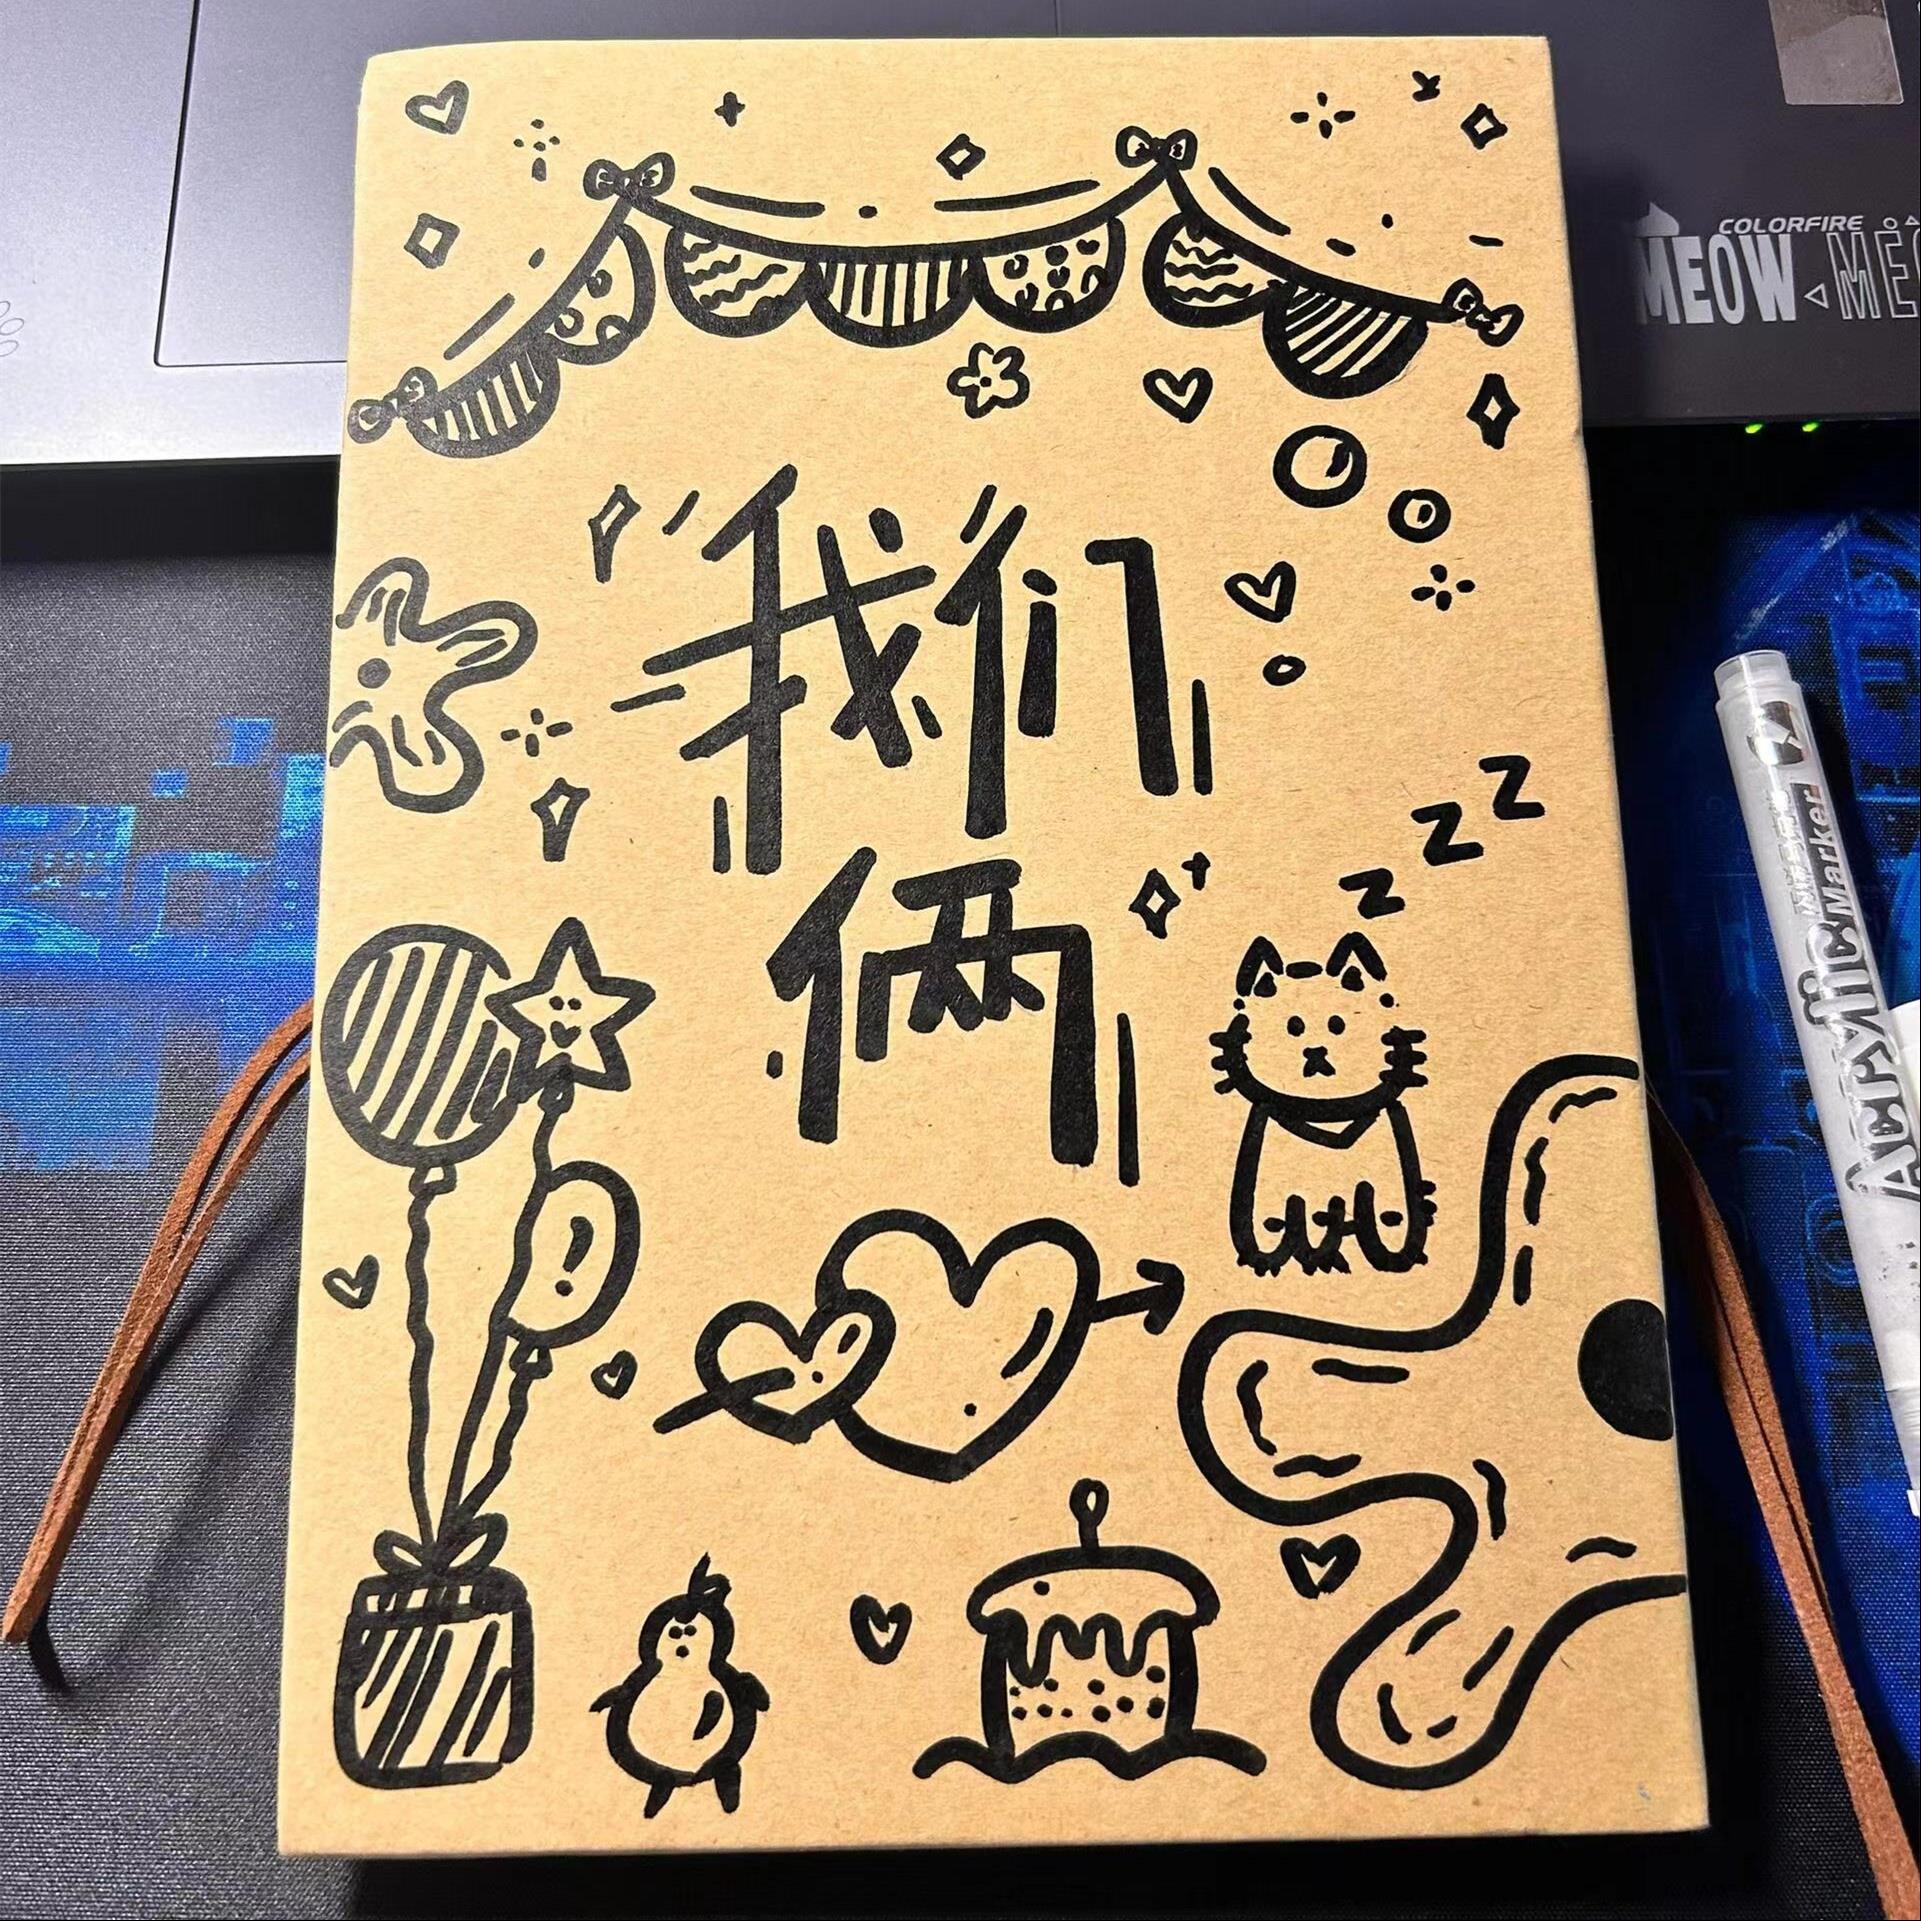 COLORFIRE
MEOW
我们
俩
z z z
Acrylic
Marker